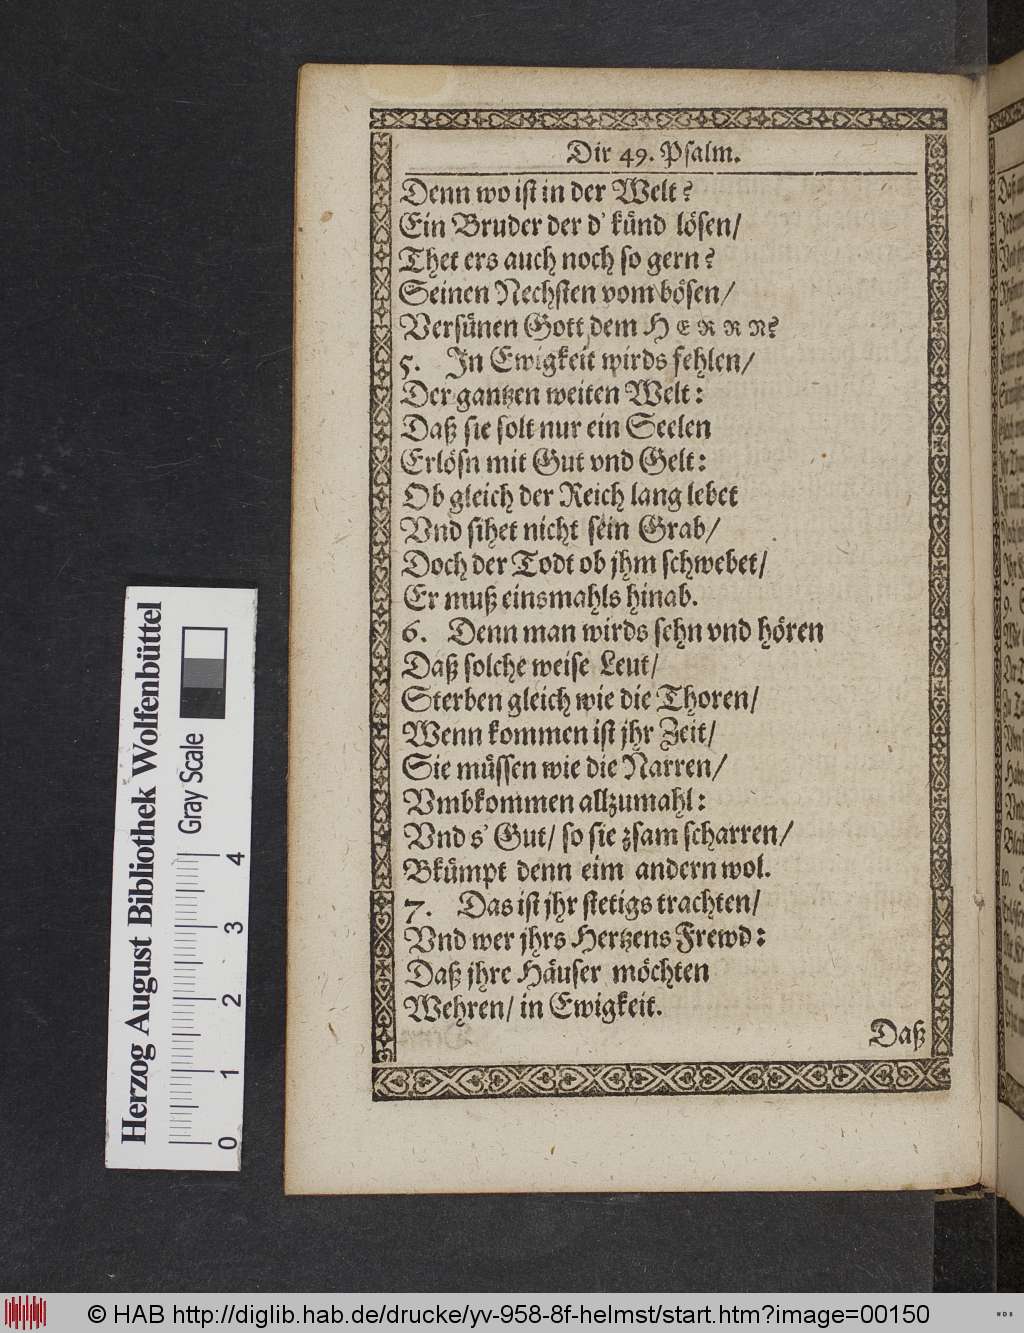 Dir 49. Psalm.
Denn wo ist in der Welt?
Ein Bruder der d' künd lösen/
Thet ers auch noch so gern?
Seinen Nechsten vom bösen/
Versünen Gott dem HERRN?
5. In Ewigkeit wirds fehlen/
Der gantzen weiten Welt:
Daß sie solt nur ein Seelen
Erlösn mit Gut vnd Gelt:
Ob gleich der Reich lang lebet
Vnd sihet nicht sein Grab/
Doch der Todt ob jhm schwebet/
Er muß einsmahls hinab.
6. Denn man wirds sehn vnd hören
Daß solche weise Leut/
Sterben gleich wie die Thoren/
Wenn kommen ist jhr Zeit/
Sie müssen wie die Narren/
Vmbkommen allzumahl:
Vnd s' Gut/ so sie zsam scharren/
Bkümpt denn eim andern wol.
7. Das ist jhr stetigs trachten/
Vnd wer jhrs Hertzens Frewd:
Daß jhre Häuser möchten
Wehren/ in Ewigkeit.
Daß
Herzog August Bibliothek Wolfenbüttel
Gray Scale
0 1 2 3 4
© HAB http://diglib.hab.de/drucke/yv-958-8f-helmst/start.htm?image=00150